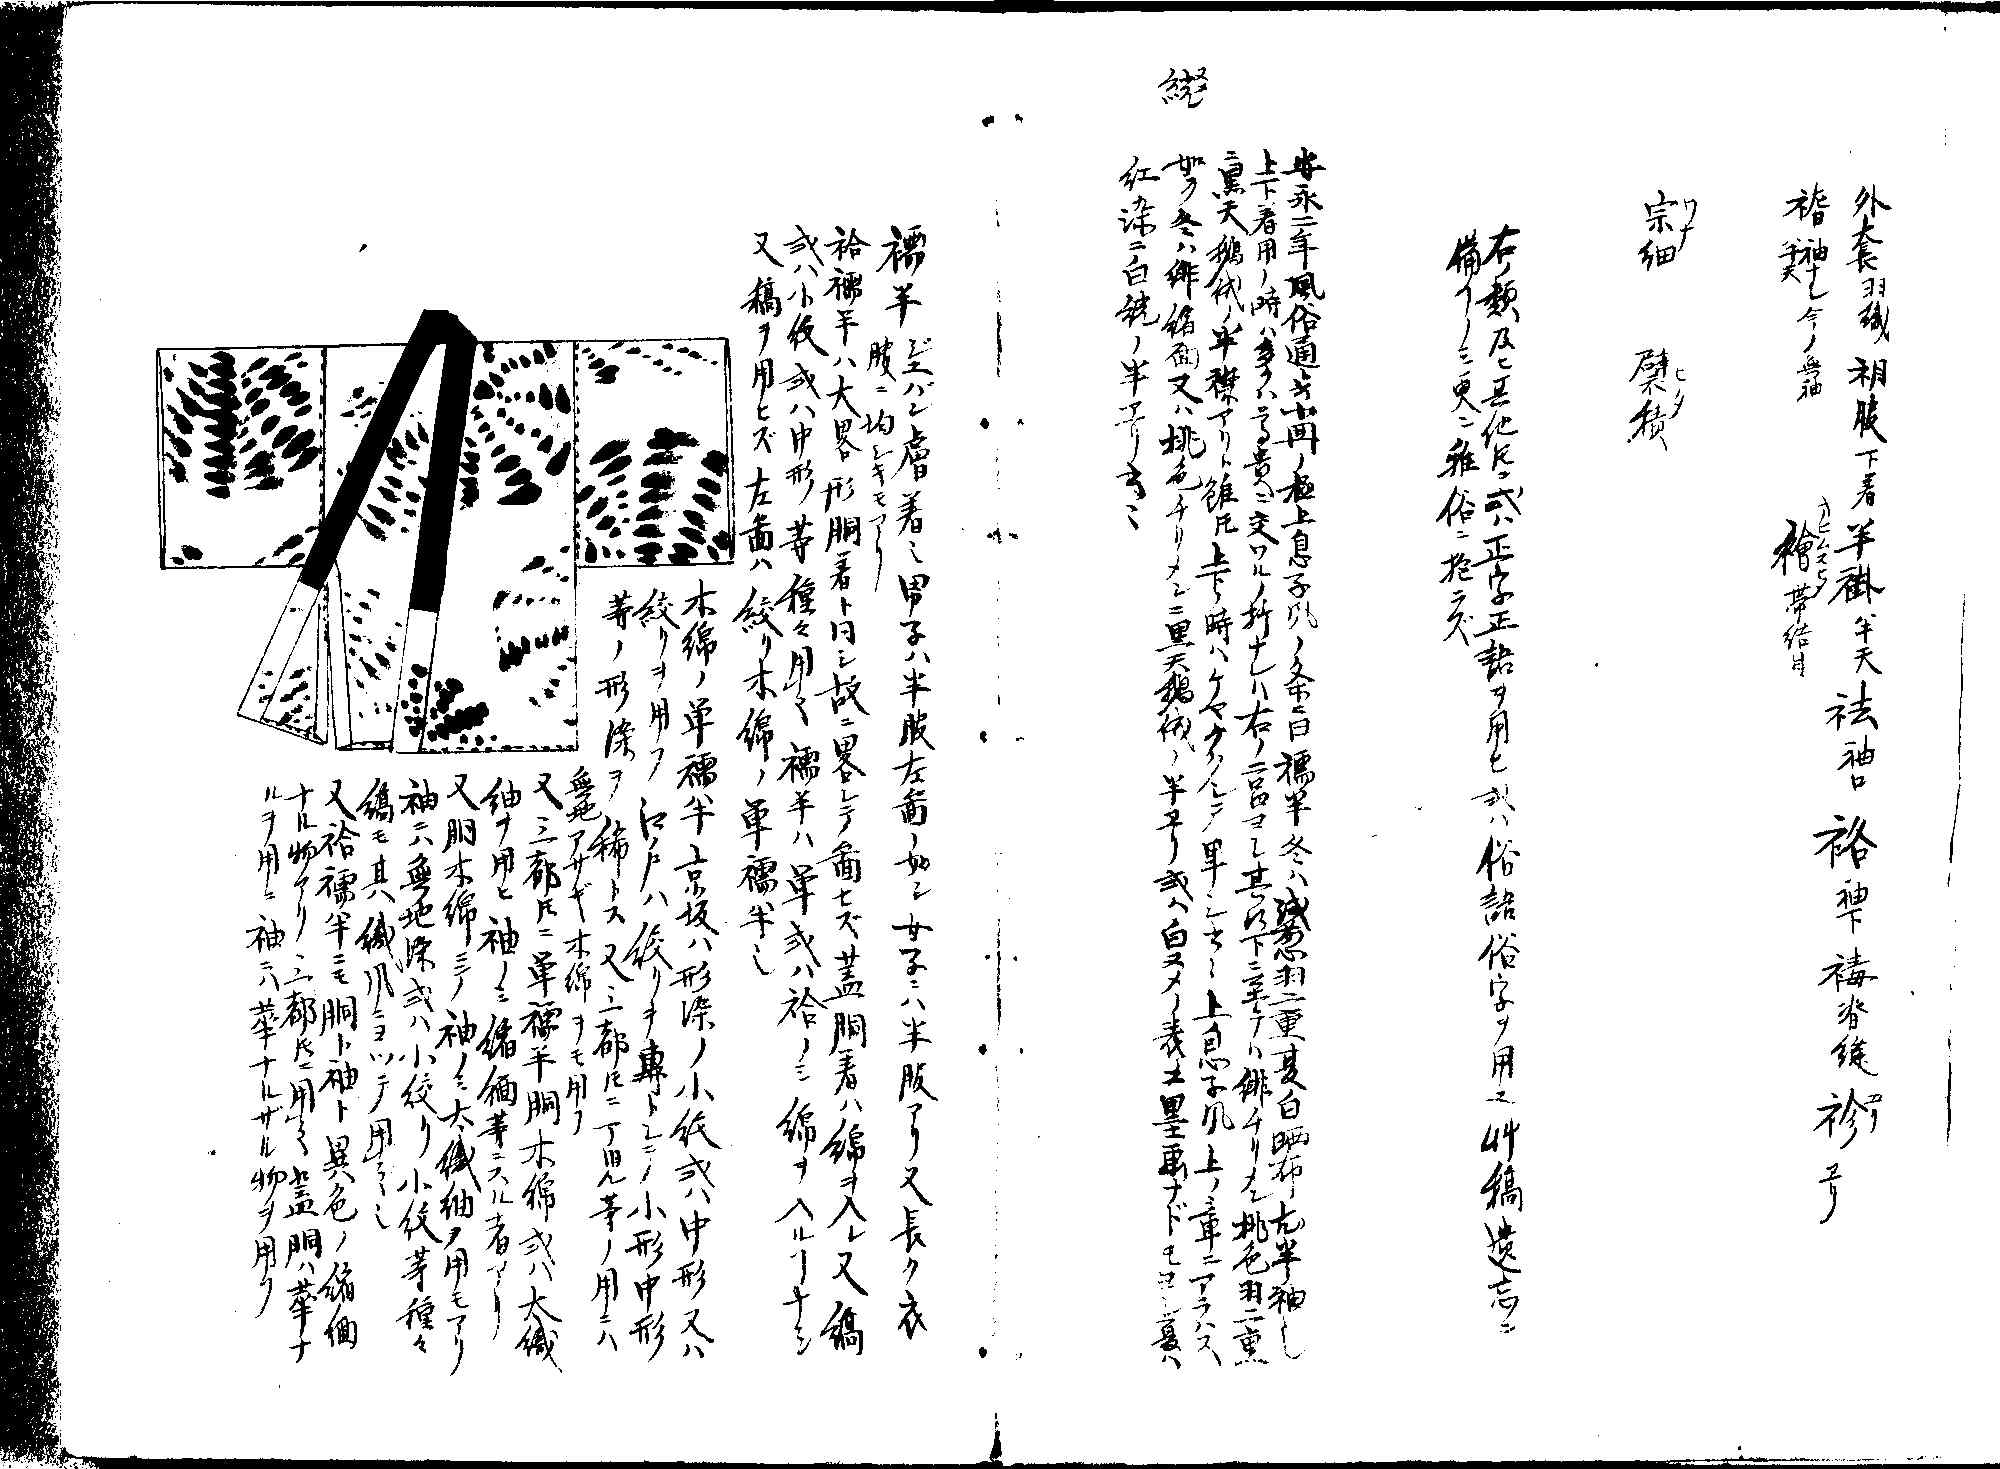 外套 羽織 袒服 下着 半褂 半天 袪 袖口 袼 袖下 䙁 脊縫 袗 ヱリ
袖ナシ 今ノ無袖半天 襘 帯結目
宗細 襞積
ワナ ヒダ
右ノ類及ヒ其他トモニ或ハ正字正語ヲ用ヒ或ハ俗語俗字ヲ用フ 艸稿遺忘ニ
備フノミ更ニ雅俗ニ拘ラズ
安永二年風俗通ト云册ノ極上息子風ノ条ニ曰襦半冬ハ浅葱羽二重夏白晒布尤半袖也
上下着用ノ時ハ多クハ高貴ニ交ワルノ折ナレハ右ノ二品ヨシ其以下ニ至テハ緋チリメン桃色羽二重
ニ黒天鵝絨ノ半襟アリト雖トモ上下ノ時ハケヤケクシテ卑シ云々上息子風上ノ章ニアラハス
如ク冬ハ緋縮緬又ハ桃色チリメンニ黒天鵝絨ノ半ヱリ或ハ白ヌメノ表エ墨画ナドモヨシ夏ハ
紅染ニ白絖ノ半ヱリ云々
絖
襦半 ジユバン膚着也男子ハ半服左図ノ如シ女子ニハ半服アリ又長ク衣
服ニ均シキモアリ
袷襦半ハ大畧形胴着ト同シ故ニ畧シテ図セズ蓋胴着ハ綿ヲ入レ又縞
或ハ小紋或ハ中形等種々用フ 襦半ハ単或ハ袷ノミ綿ヲ入ルヿナシ
又縞ヲ用ヒズ左図ハ絞リ木綿ノ単襦半也
木綿ノ単襦半京坂ハ形染ノ小紋或ハ中形又ハ
絞リヲ用フ 江戸ハ絞リヲ専トシテ小形中形
等ノ形染ヲ稀トス 又三都トモニ丁児等ノ用ニハ
無地アサギ木綿ヲモ用フ
又三都トモニ単襦半胴木綿或ハ太織
紬ヲ用ヒ袖ノミ縮緬等ニスル者アリ
又胴木綿ニテ袖ノミ太織紬ヲ用モアリ
袖ニハ無地染或ハ小絞リ小紋等種々
縞モ其ハ織風ニヨツテ用フ也
又袷襦半ニモ胴ト袖ト異色ノ縮緬
ナル物アリ三都トモニ用フ 蓋胴ハ華ナ
ルヲ用ヒ袖ニハ華ナルザル物ヲ用フ